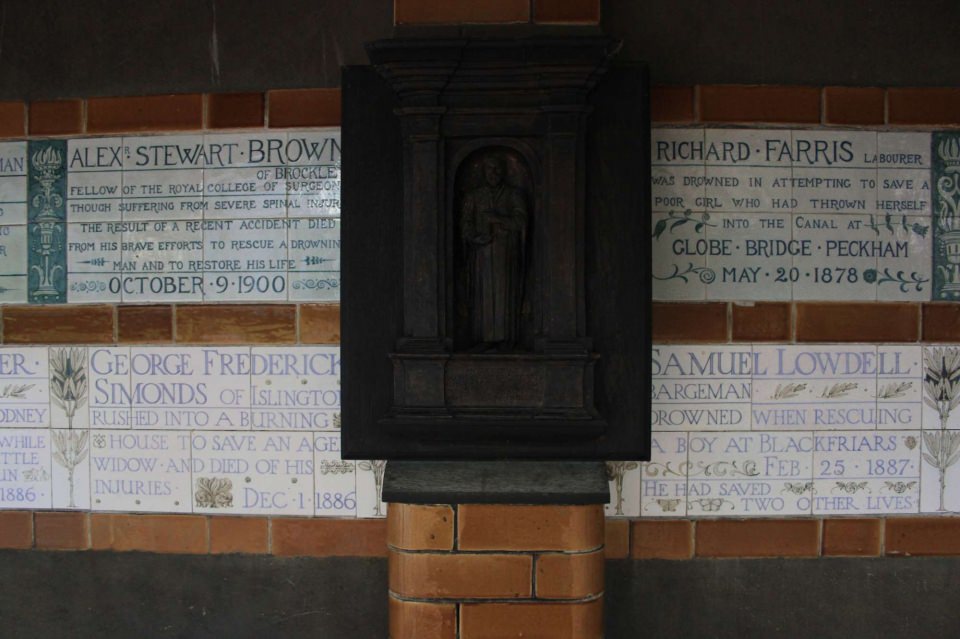 MAN
ALEXR STEWART · BROWN
OF BROCKLE
FELLOW OF THE ROYAL COLLEGE OF SURGEON
THOUGH SUFFERING FROM SEVERE SPINAL INJUR
THE RESULT OF A RECENT ACCIDENT DIED
FROM HIS BRAVE EFFORTS TO RESCUE A DROWNIN
MAN AND TO RESTORE HIS LIFE
OCTOBER · 9 · 1900
RICHARD · FARRIS LABOURER
WAS DROWNED IN ATTEMPTING TO SAVE A
POOR GIRL WHO HAD THROWN HERSELF
INTO THE CANAL AT
GLOBE · BRIDGE · PECKHAM
MAY · 20 · 1878
ER
DNEY
WHILE
TTLE
UN
1886
GEORGE FREDERICK
SIMONDS OF ISLINGTON
RUSHED INTO A BURNING
HOUSE TO SAVE AN AGE
WIDOW AND DIED OF HIS
INJURIES · DEC · 1 · 1886
SAMUEL LOWDELL
BARGEMAN
DROWNED WHEN RESCUING
A BOY AT BLACKFRIARS
FEB · 25 · 1887 ·
HE HAD SAVED
TWO OTHER LIVES